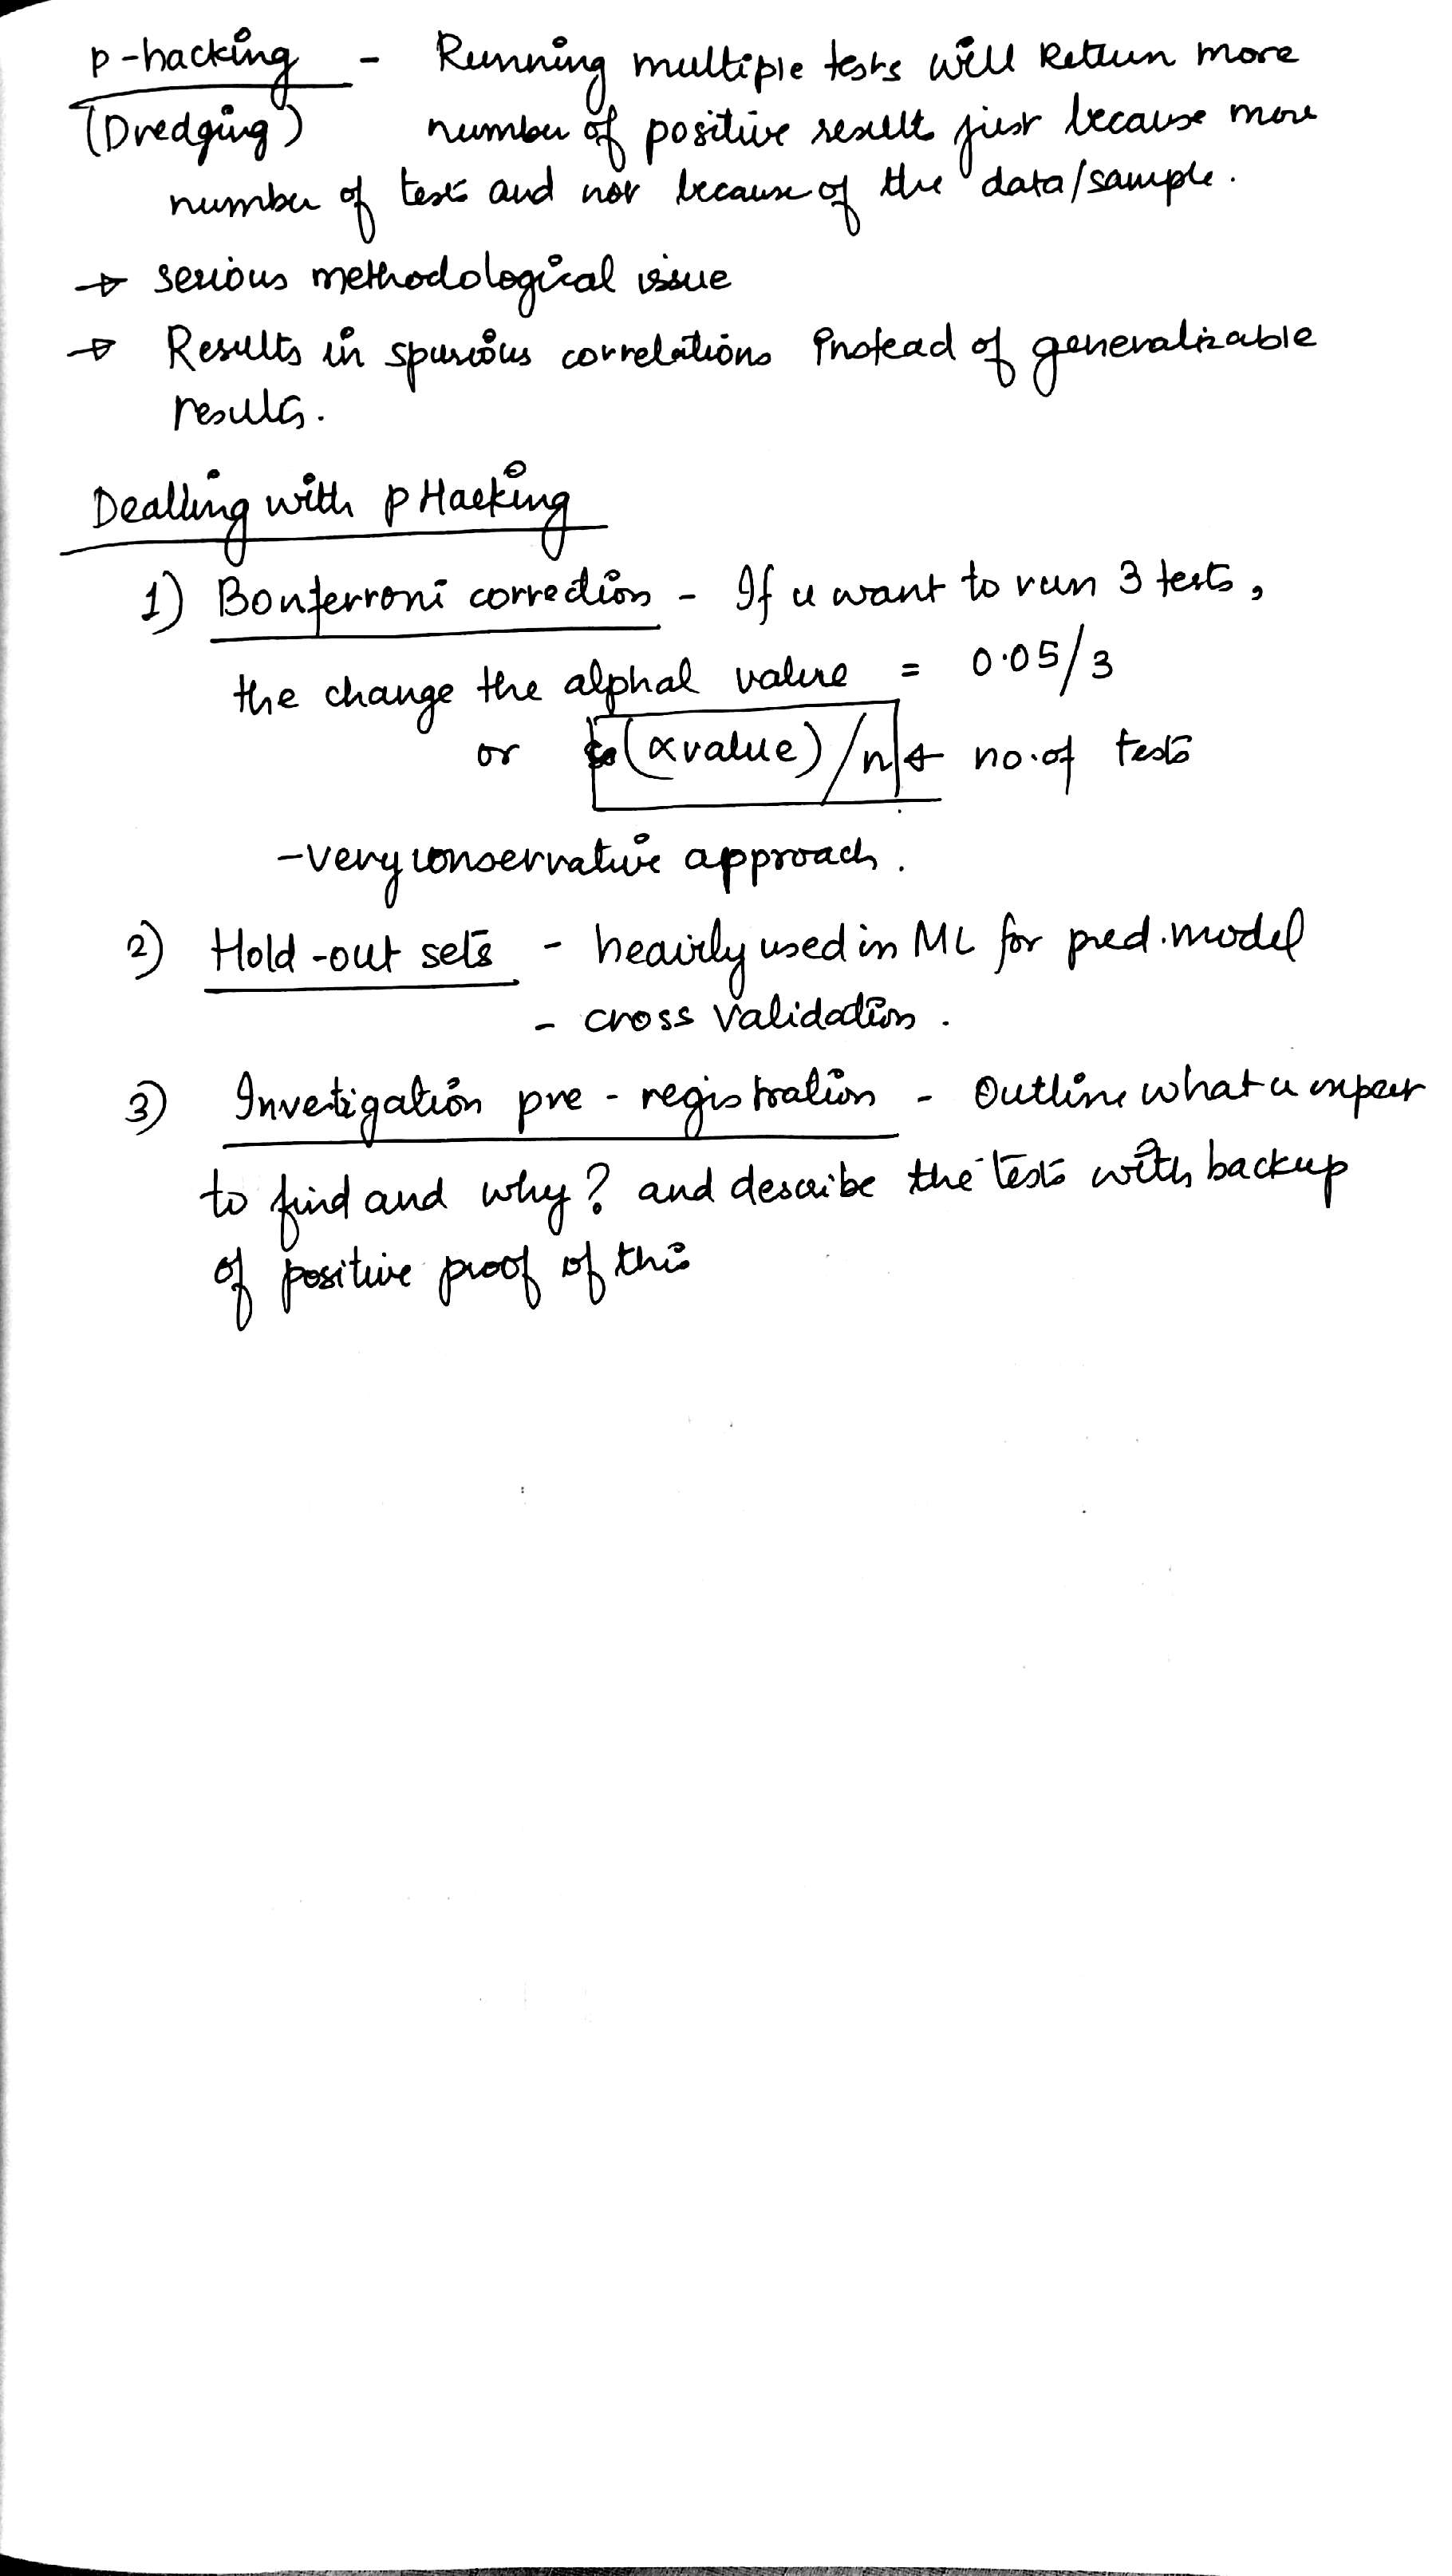 p-hacking - Running multiple tests will Return more
(Dredging) number of positive result just because more
number of tests and not because of the data/sample.
→ serious methodological issue
→ Results in spurious correlations instead of generalizable
results.
Dealling with p Hacking
1) Bonferroni correction - If u want to run 3 tests,
the change the alphal value = 0.05/3
or (∝ value)/n ← no. of tests
- very conservative approach.
2) Hold-out sets - heavily used in ML for pred. model
- cross validation.
3) Investigation pre-registration - Outline what u expect
to find and why? and describe the tests with backup
of positive proof of this